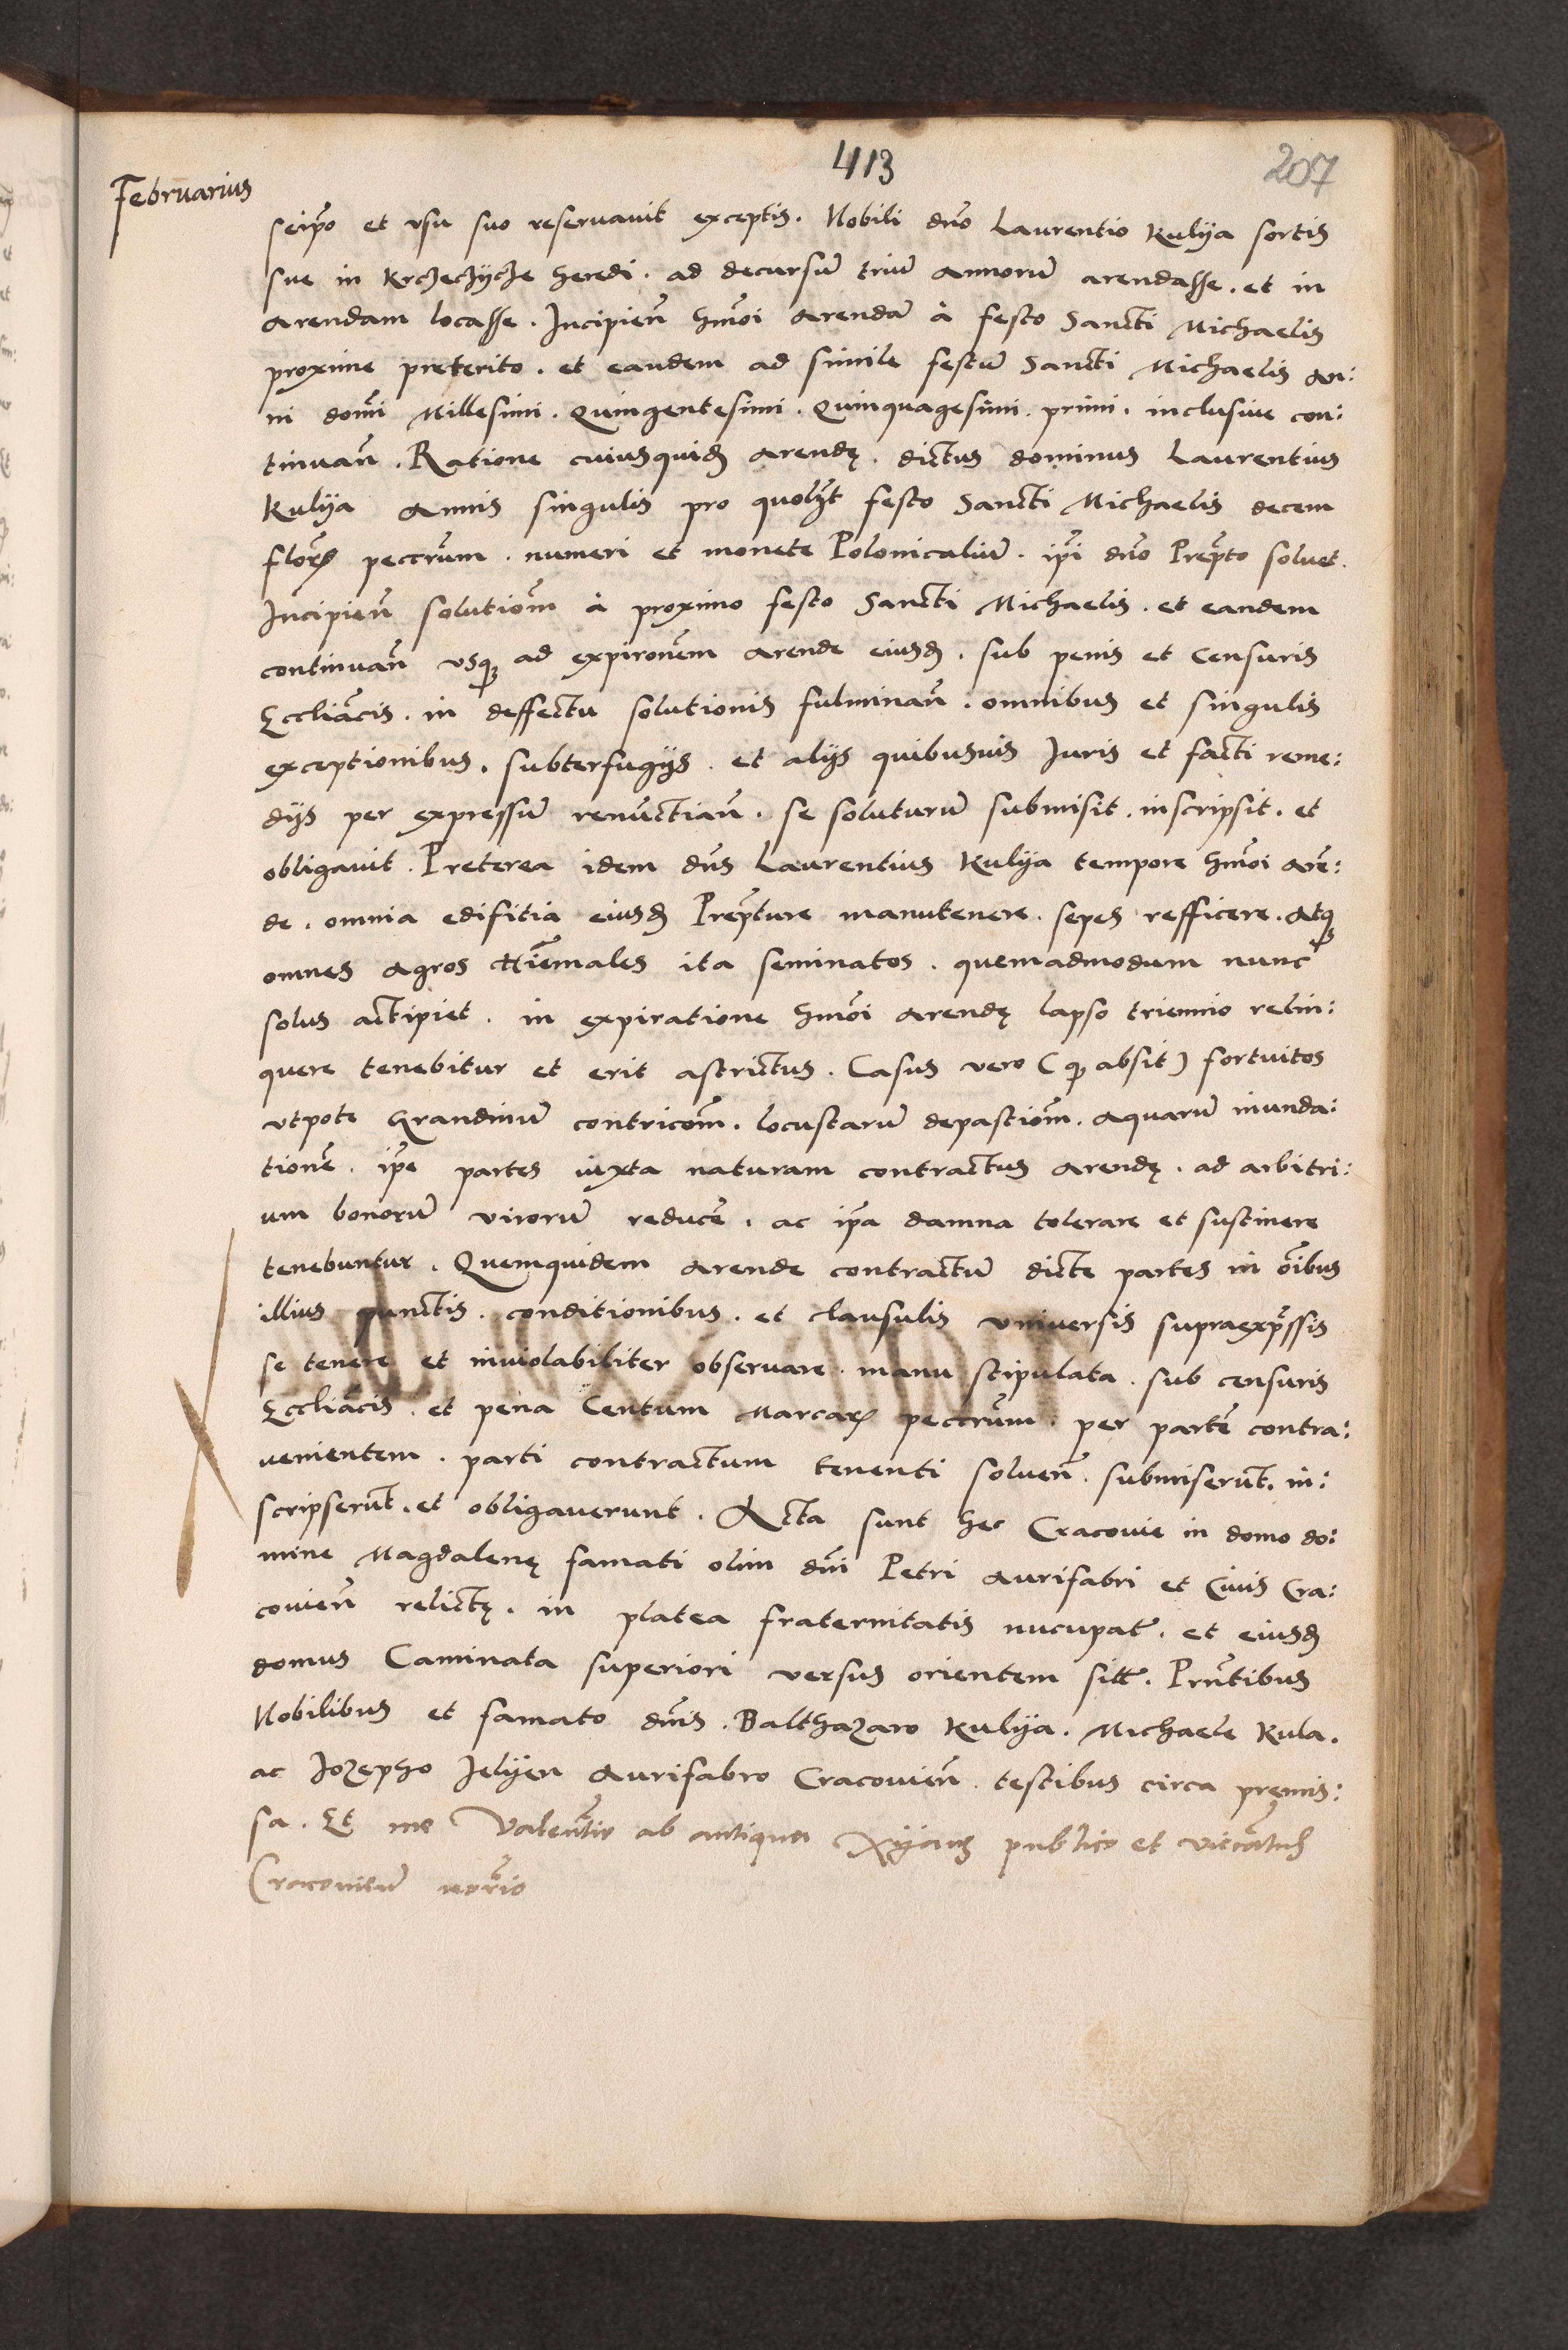 413
207
Februarius
seip̃o et vsu suo reservauit exceptis. Nobili dño Laurentio Kulÿa sortis
sue in Krczeczÿcze heredi. ad decursũ triũ annorũ arendasse. et in
arendam locasse. Incipieñ hm̃oi arendã à festo Sancti Michaelis
proxime preterito. et eandem ad simile festũ Sancti Michaelis an:
ni domĩ Millesimi. Quingentesimi. Quinquagesimi. primi. inclusive con:
tinuañ. Ratione cuiusquidẽ arendę. dictus dominus Laurentius
Kulÿa annis singulis pro quolȳt festo Sancti Michaelis decem
florẽ peccr̃um. numeri et monete Polonicaliũ. ip̃i dño Prep̃to soluet.
Incipieñ solutiom̃ à proximo festo Sancti Michaelis. et eandem
continuañ vsq; ad expirom̃em arende eiusd̃. sub penis et Censuris
Eccliãcis. in deffectu solutionis fulminañ. omnibus et singulis
exceptionibus. subterfugÿs. et alÿs quibusuis Iuris et facti reme:
dÿs per expressũ renũctiañ. se soluturũ submisit. inscripsit. et
obligauit. Preterea idem dñs Laurentius Kulÿa tempore hm̃oi arẽ:
de. omnia edifitia eiusd̃ Prep̃ture manutenere. sepes refficere. atq;
omnes agros Hiẽmales ita seminatos. quemadmodum nunc
solus actipiet. in expiratione hm̃oi arendę lapso triennio relin:
quere tenebitur et erit astrictus. Casus vero (q; absit) fortuitos
vtpote Grandinũ contricom̃. locustarũ depastiom̃. aquarũ inunda:
tionẽ. ip̃e partes iuxta naturam contractus arendę. ad arbitri:
um bonorũ virorũ reducẽ. ac ip̃a damna tolerare et sustinere
tenebuntur. Quemquidem arende contractũ dicte partes in oĩbus
illius punctis. conditionibus. et clausulis vniversis supraexp̃ssis
se tenere et inviolabiliter observare. manu stipulata. sub censuris
Eccliãcis. et pena Centum Marcarẽ peccr̃um. per partẽ contra:
venientem. parti contractum tenenti solueñ. submiserũt. in:
scripserũt. et obligaverunt. Acta sunt hec Cracovie in domo do:
mine Magdalenę famati olim dñi Petri aurifabri et Civis Cra:
covieñ relictę. in platea fraternitatis nũcupat̃. et eiusd̃
domus Caminata superiori versus orientem sitt̃. Prñtibus
Nobilibus et famato dñis. Balthazaro Kulÿa. Michaele Kula.
ac Jozepho Jelÿen aurifabro Cracovieñ. testibus circa premis:
sa. Et me Valentĩo ab antiqua publico et
Cracovieñ norĩo